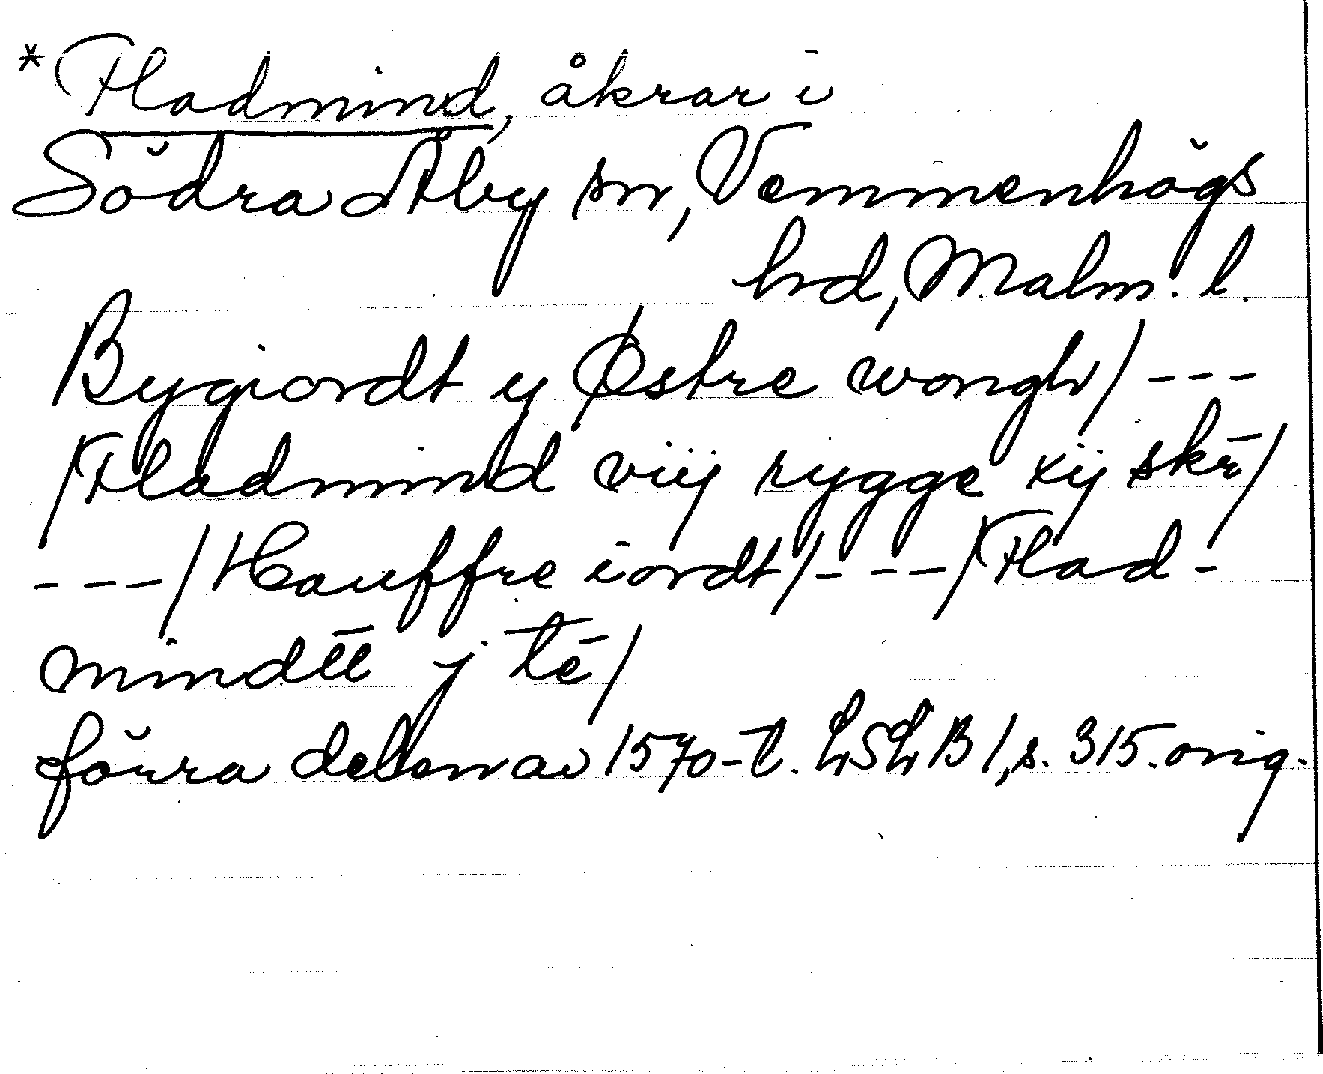 *Fladmind, åkrar i
Södra Åby sn, Vemmenhögs
hd, Malm. l.
Bygiordt y Østre wongh/ ---
/Fladmind viij rygge xij skr̄/
---/Hauffre iordt/---/Flad-
mindt̄t̄ j tē/
förra delen av 1570-t. LSLB1, s. 315. orig.